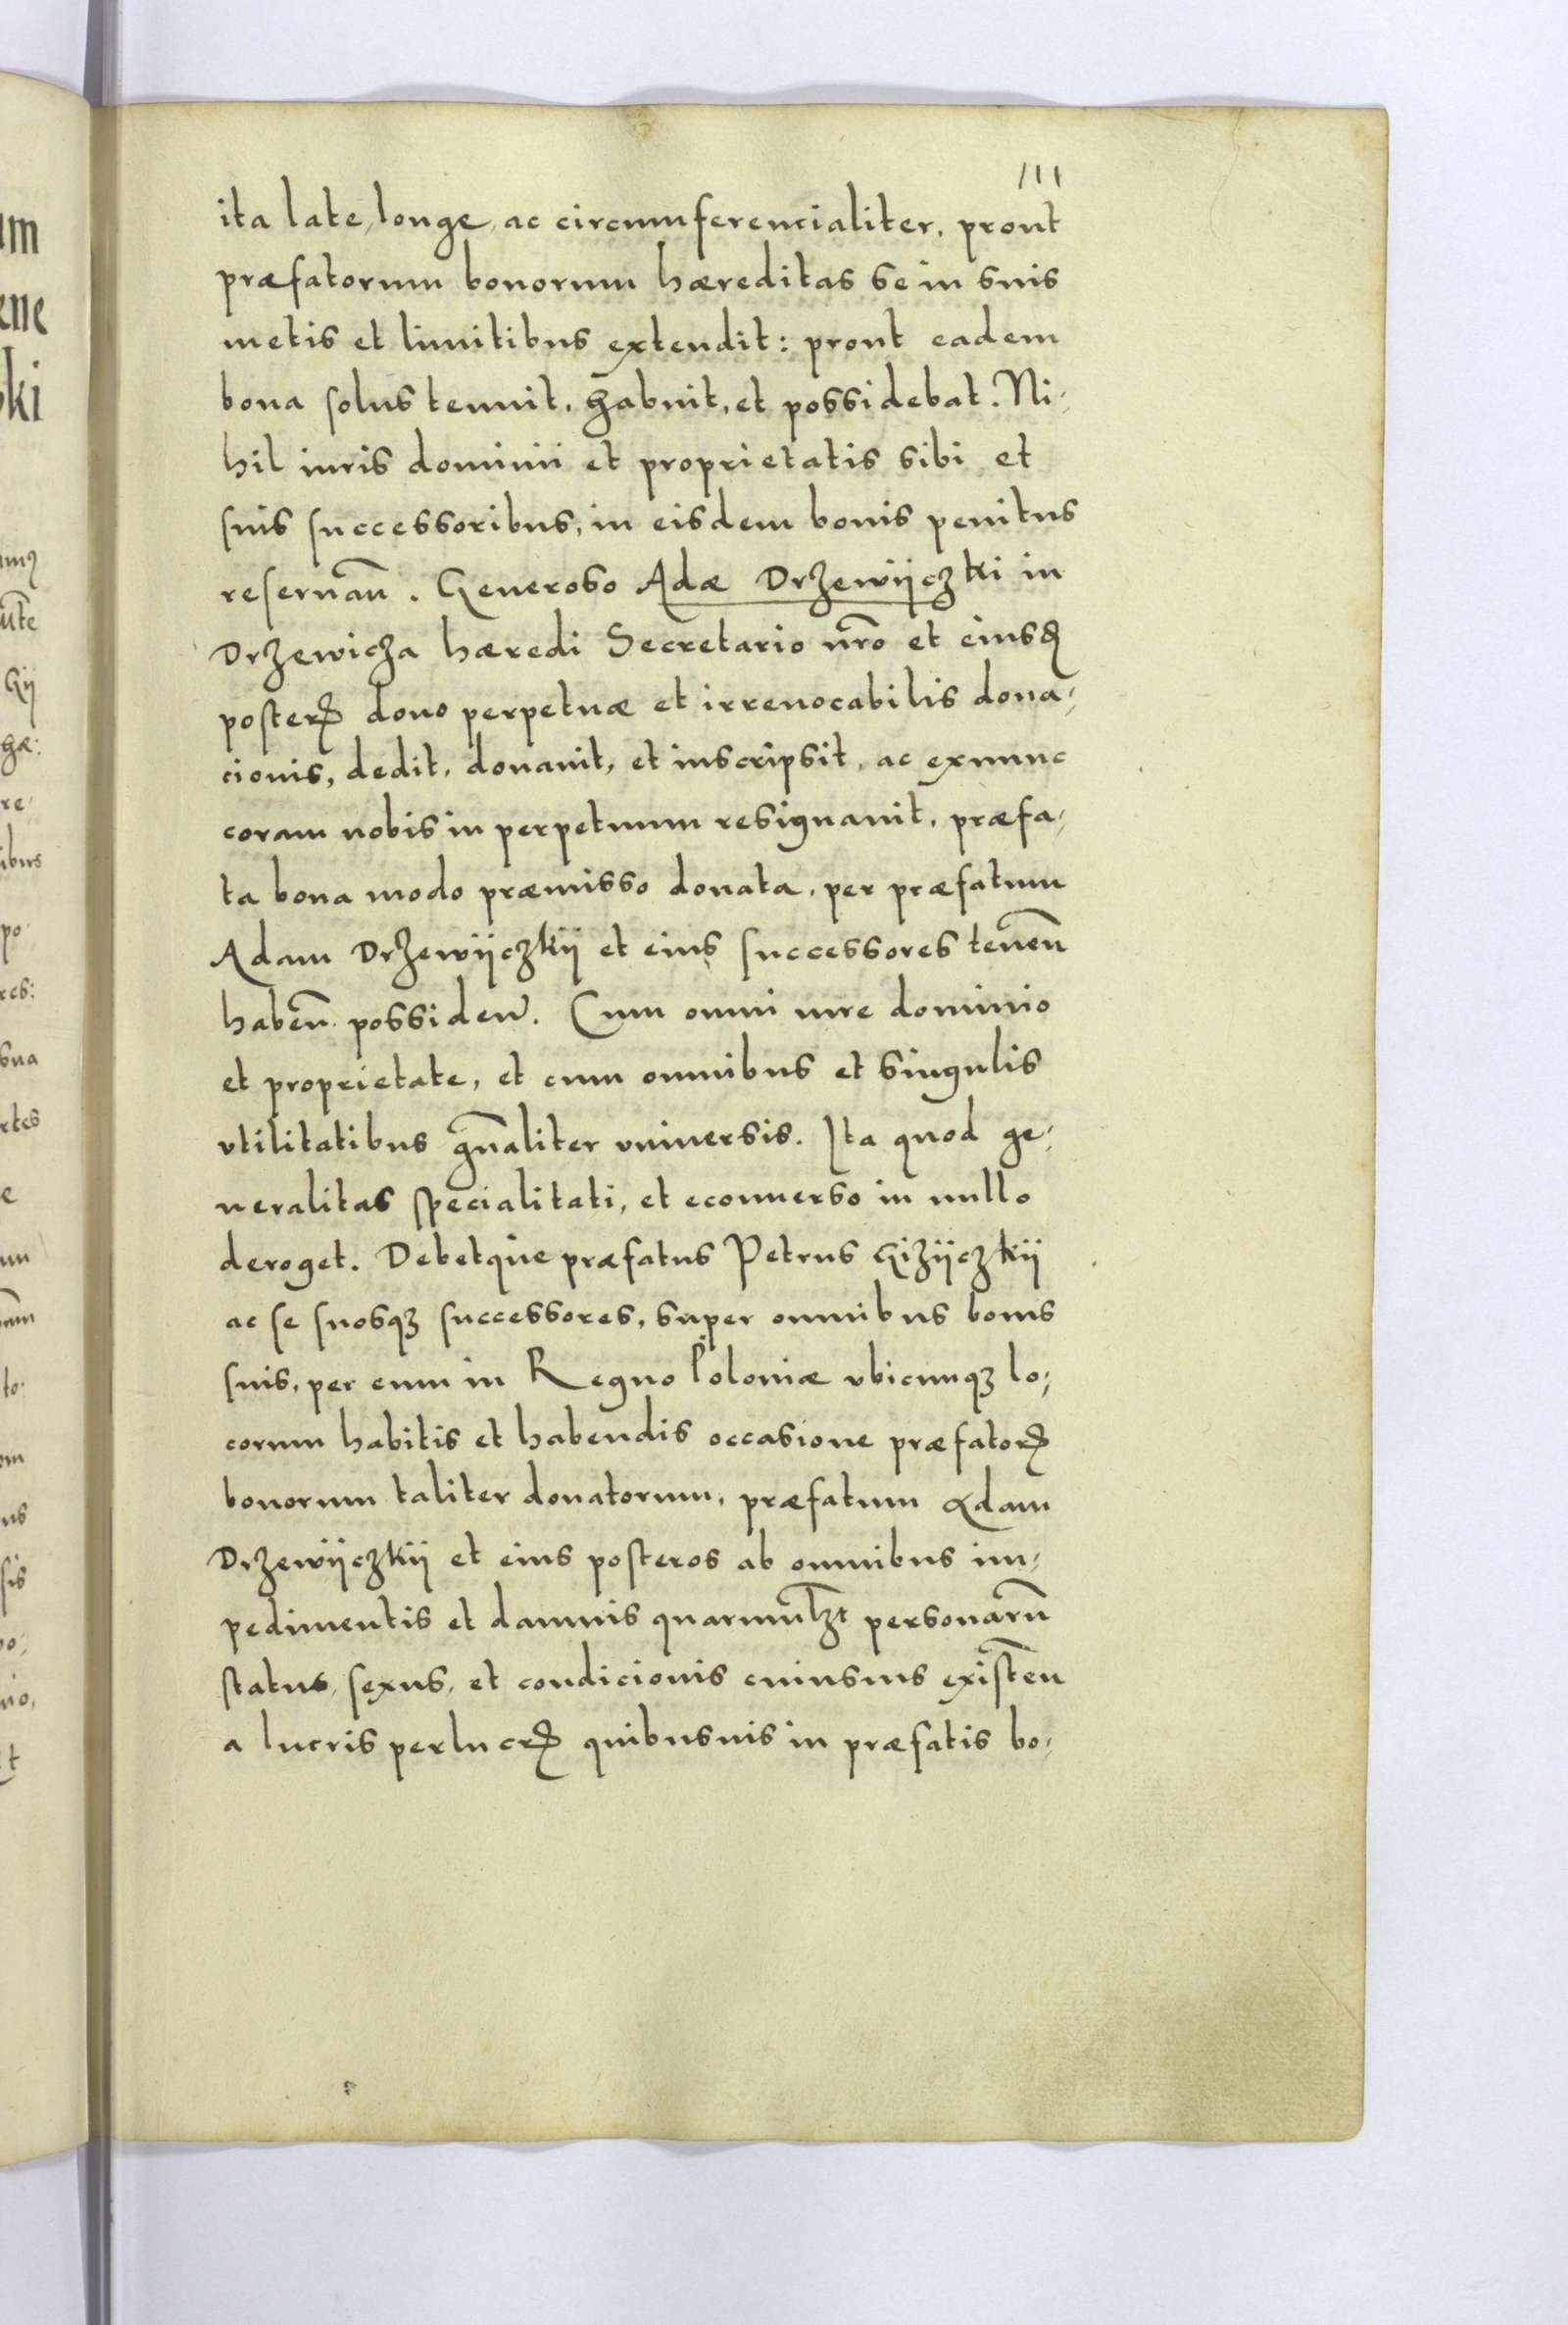 111
ita late, longe, ac circumferencialiter, prout
præfatorum bonorum hæreditas se in suis
metis et limitibus extendit: prout eadem
bona solus tenuit, habuit, et possidebat. Ni-
hil iuris dominii et proprietatis sibi et
suis successoribus, in eisdem bonis penitus
reseruañ. Generoso Adæ Drzewÿczki in
Drzewicza hæredi Secretario nr̃o et eiusd̃
posterꝝ dono perpetuæ et irreuocabilis dona-
cionis, dedit, donauit, et inscripsit, ac exnunc
coram nobis in perpetuum resignauit, præfa-
ta bona modo præmisso donata, per præfatum
Adam Drzewÿczkÿ et eius successores teneñ
habeñ possideñ. Cum omni iure dominio
et proprietate, et cum omnibus et singulis
vtilitatibus gñaliter vniuersis. Ita quod ge-
neralitas specialitati, et econuerso in nullo
deroget. Debetque præfatus Petrus Gizÿczkÿ
ac se suosqꝫ successores, super omnibus bonis
suis, per eum in Regno Poloniæ vbicunqꝫ lo-
corum habitis et habendis occasione præfatorꝝ
bonorum taliter donatorum, præfatum Adam
Drzewÿczkÿ et eius posteros ab omnibus im-
pedimentis et damnis quarumlꝫt personarũ
status, sexus, et condicionis cuiusuis existeñ
a lucris perlucrꝝ quibusuis in præfatis bo-